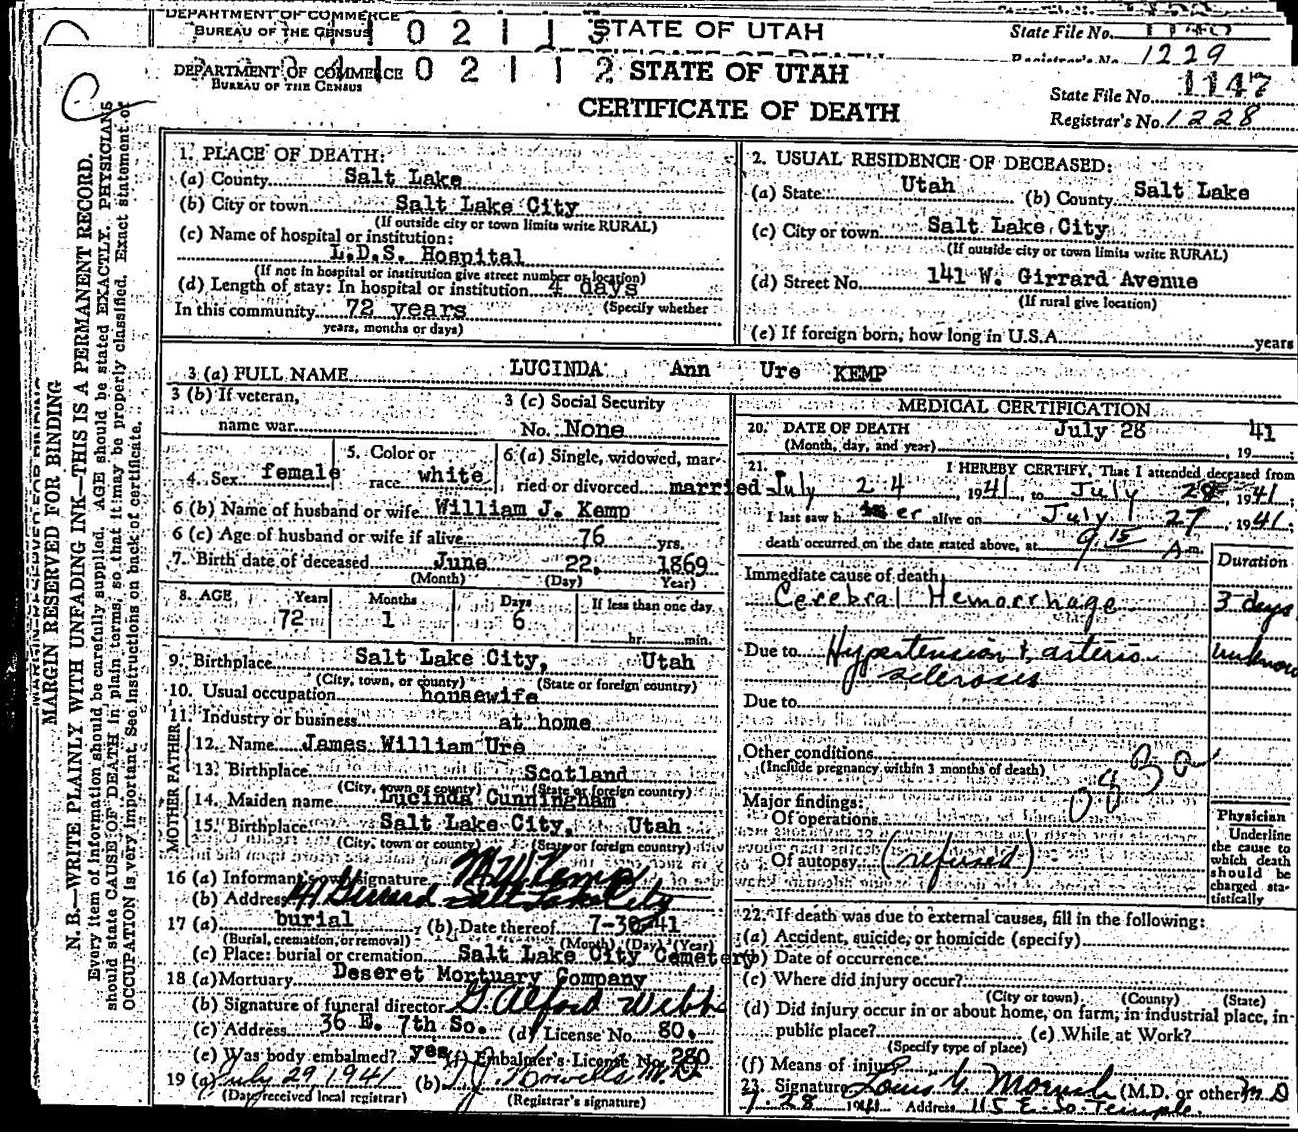 DEPARTMENT OF COMMERCE
BUREAU OF THE CENSUS
STATE OF UTAH
State File No.
Registrar's No. 1229
DEPARTMENT OF COMMERCE
BUREAU OF THE CENSUS
STATE OF UTAH
CERTIFICATE OF DEATH
State File No. 1147
Registrar's No. 1228
MARGIN RESERVED FOR BINDING
N. B.—WRITE PLAINLY WITH UNFADING INK—THIS IS A PERMANENT RECORD.
Every item of information should be carefully supplied. AGE should be stated EXACTLY. PHYSICIANS
should state CAUSE OF DEATH in plain terms, so that it may be properly classified. Exact statement of
OCCUPATION is very important. See instructions on back of certificate.
1. PLACE OF DEATH:
(a) County Salt Lake
(b) City or town Salt Lake City
(If outside city or town limits write RURAL)
(c) Name of hospital or institution:
L.D.S. Hospital
(If not in hospital or institution give street number or location)
(d) Length of stay: In hospital or institution 4 days
In this community 72 years (Specify whether
years, months or days)
2. USUAL RESIDENCE OF DECEASED:
(a) State Utah (b) County Salt Lake
(c) City or town Salt Lake City
(If outside city or town limits write RURAL)
(d) Street No. 141 W. Girrard Avenue
(If rural give location)
(e) If foreign born, how long in U.S.A. years
3 (a) FULL NAME LUCINDA Ann Ure KEMP
3 (b) If veteran,
name war
3 (c) Social Security
No. None
4. Sex female
5. Color or
race white
6 (a) Single, widowed, mar-
ried or divorced married
6 (b) Name of husband or wife William J. Kemp
6 (c) Age of husband or wife if alive 76 yrs.
7. Birth date of deceased June 22, 1869
(Month) (Day) Year)
8. AGE Years Months Days If less than one day
72 1 6 hr. min.
9. Birthplace Salt Lake City, Utah
(City, town, or county) (State or foreign country)
10. Usual occupation housewife
11. Industry or business at home
FATHER
12. Name James William Ure
13. Birthplace Scotland
(City, town or county) (State or foreign country)
MOTHER
14. Maiden name Lucinda Cunningham
15. Birthplace Salt Lake City, Utah
(City, town or county) (State or foreign country)
16 (a) Informant's own signature M W Kemp
(b) Address Salt Lake City
17 (a) burial (b) Date thereof 7-30-41
(Burial, cremation, or removal) (Month) (Day) (Year)
(c) Place: burial or cremation Salt Lake City Cemetery
18 (a) Mortuary Deseret Mortuary Company
(b) Signature of funeral director G. Alford Webb
(c) Address 36 E. 7th So. (d) License No. 80.
(e) Was body embalmed? yes (f) Embalmer's License No. 280
19 (a) July 29, 1941 (b)
(Date received local registrar) (Registrar's signature)
MEDICAL CERTIFICATION
20. DATE OF DEATH July 28 41
(Month, day, and year) , 19
21. I HEREBY CERTIFY, That I attended deceased from
July 24, 1941, to July 28, 1941;
I last saw her alive on July 27, 1941;
death occurred on the date stated above, at 9 15 A m.
Duration
Immediate cause of death
Cerebral Hemorrhage 3 days
Due to Hypertension & arterio unknown
sclerosis
Due to
Other conditions
(Include pregnancy within 3 months of death)
083a
Major findings:
Of operations
Of autopsy (refused)
Physician
Underline
the cause to
which death
should be
charged sta-
tistically
22. If death was due to external causes, fill in the following:
(a) Accident, suicide, or homicide (specify)
(b) Date of occurrence
(c) Where did injury occur?
(City or town) (County) (State)
(d) Did injury occur in or about home, on farm, in industrial place, in
public place? (e) While at Work?
(Specify type of place)
(f) Means of injury
23. Signature Louis G. (M.D. or other) M D
7. 28 1941 Address 115 E. So. Temple.